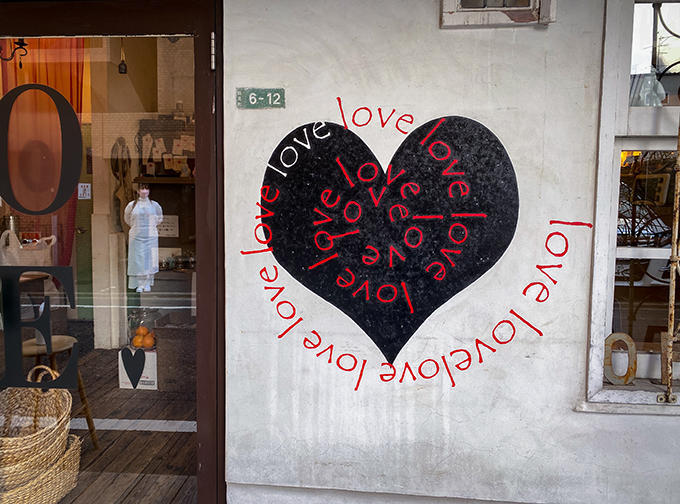 O
E
6-12
love love love love love love love love love love love love love love love